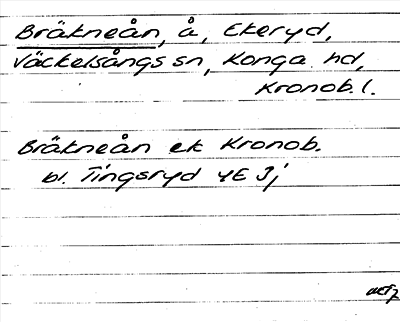 Bräkneån, å, Ekeryd,
Väckelsångs sn, Konga hd,
Kronob. l.
Bräkneån ek Kronob.
bl. Tingsryd 4E 3j